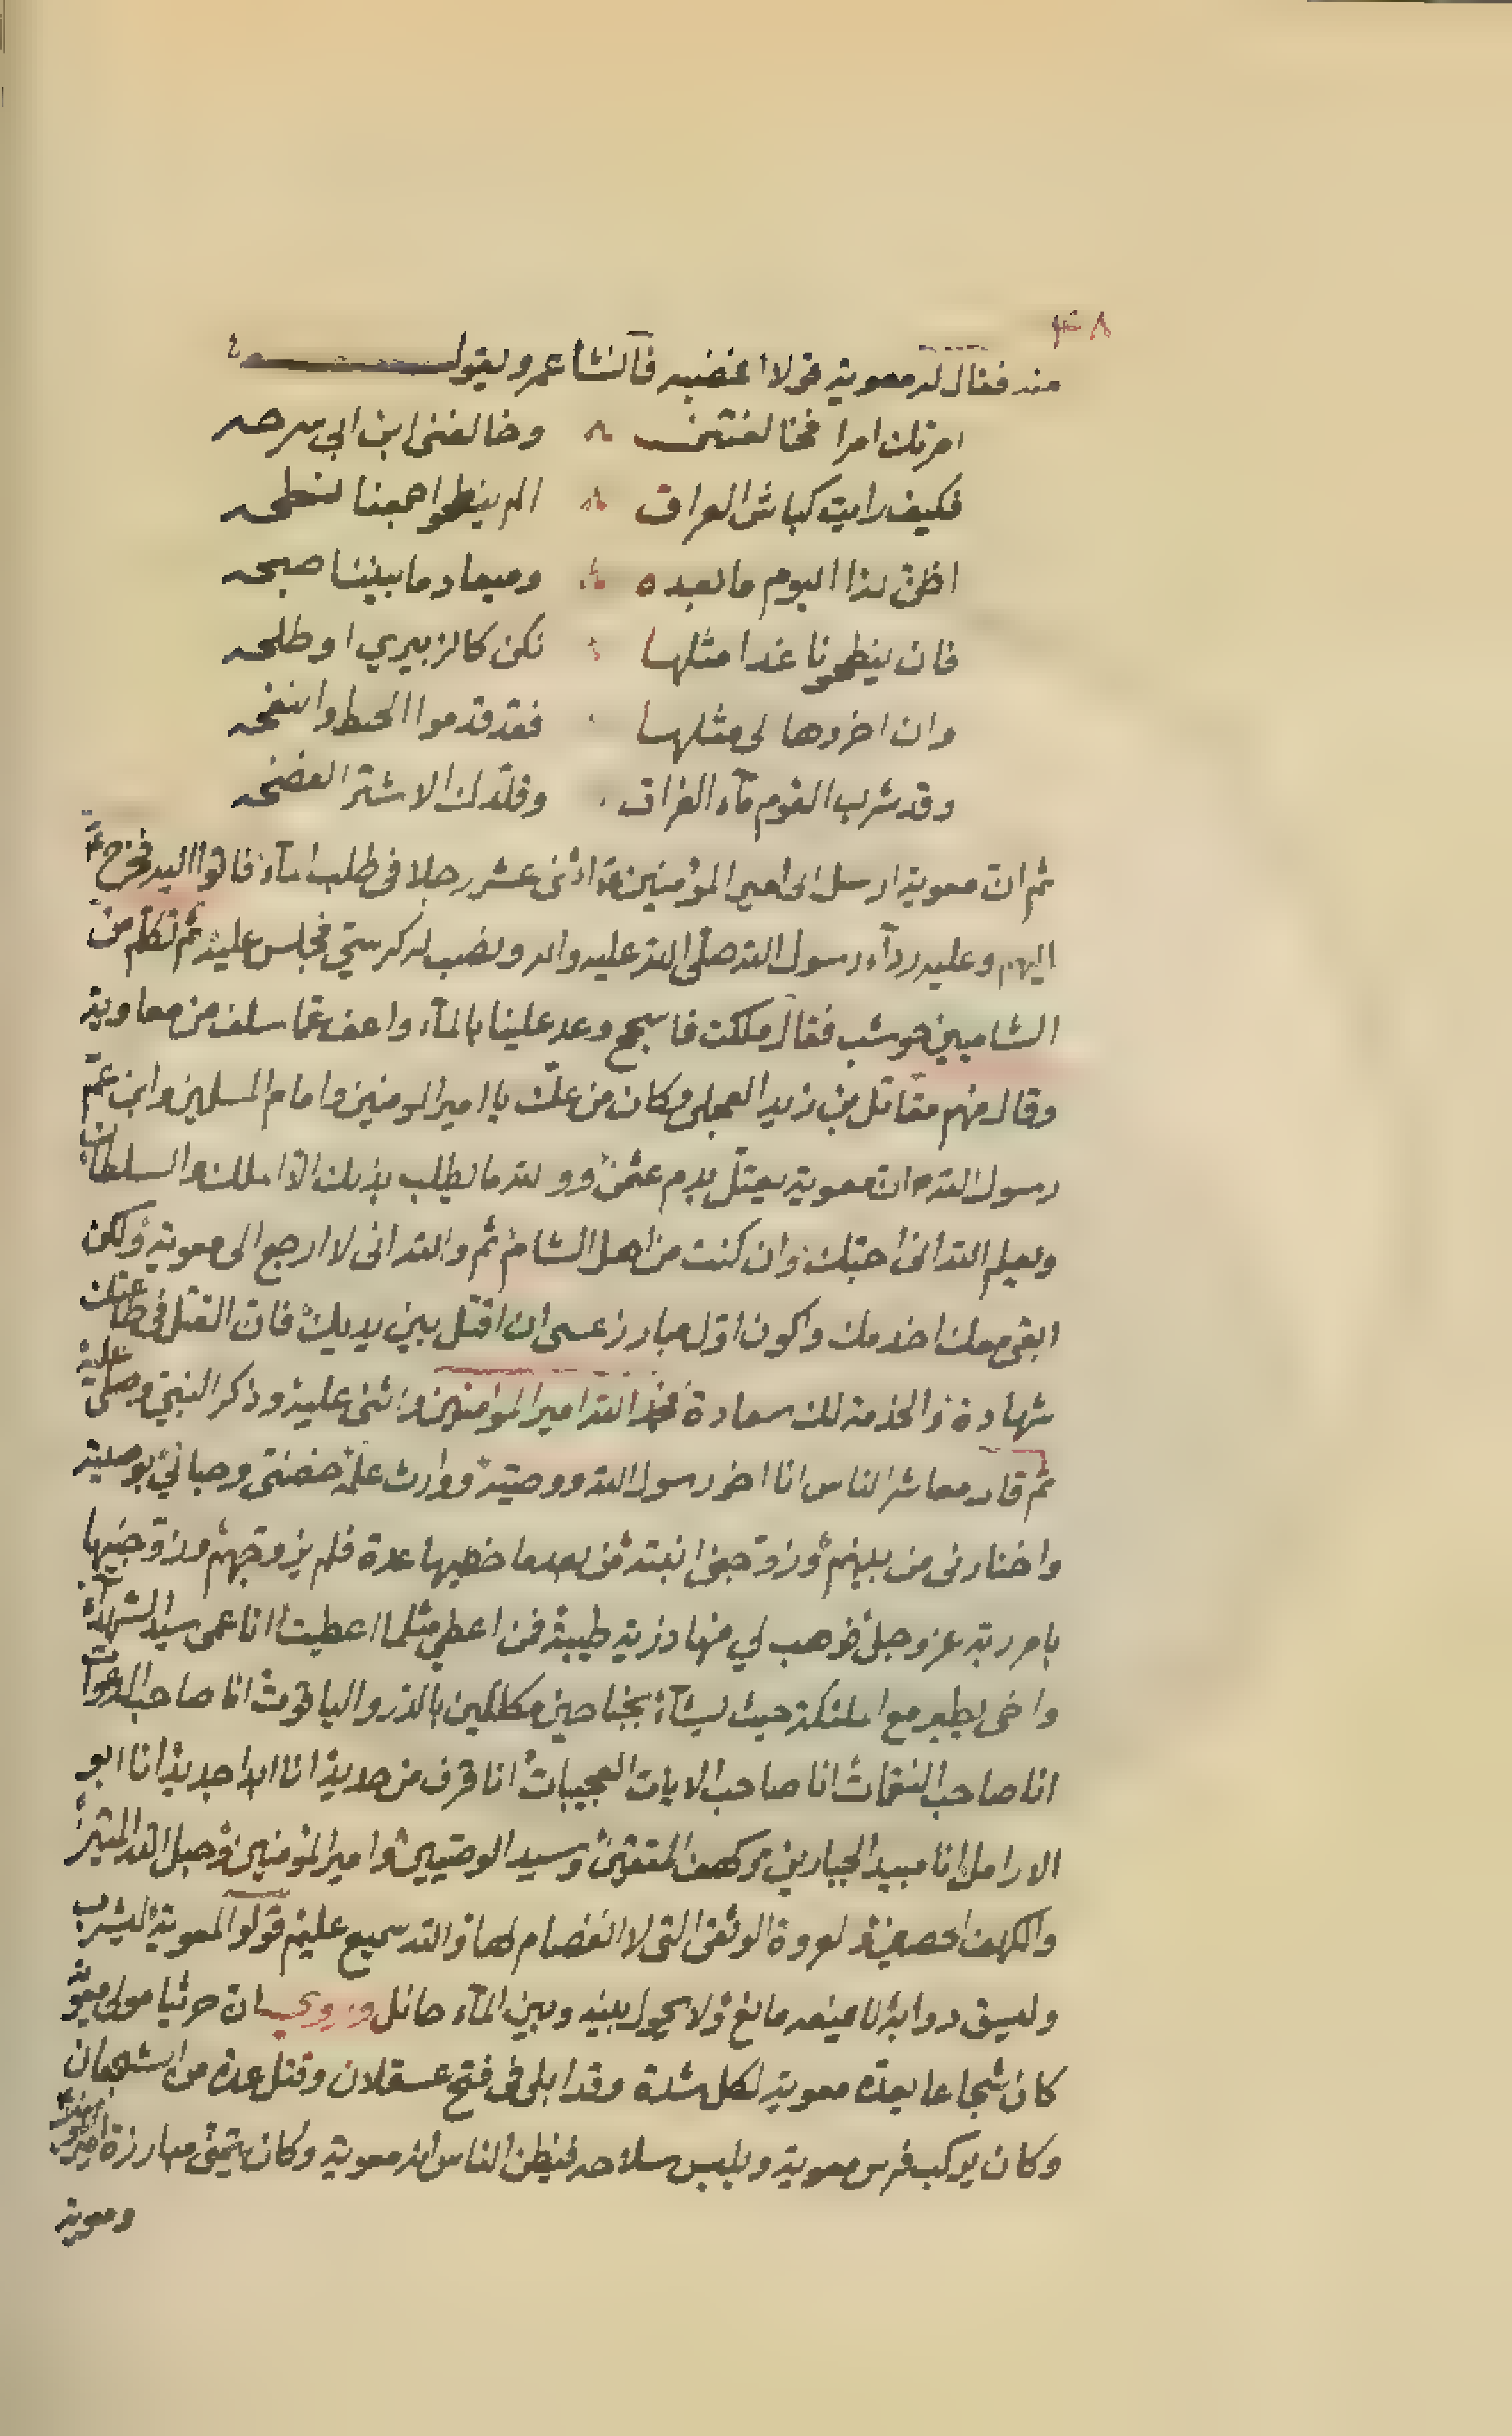 ٣٨
منه فقال له معوية قولا اغضبه فآنشا عمرو يقول
امرتك امرا فخالفتني وخالفني ابن ابي سرحه
فكيف رايت كباش العراق الم ينطحوا جمعنا نطحه
اظن لذا اليوم ما بعده وميعاد ما بيننا صبحه
فان ينطحونا غدا مثلها نكن كالزبيري او طلحه
وان اخروها لى مثلها فقد قدموا الخبط والنفحه
وقد شرب القوم مآء الفرات وقلدك الاشتر الفضحه
ثم ان معوية ارسل الى امير المؤمنين اثنى عشر رجلا فى طلب المآء فاتوا اليه فخرج ع
اليهم وعليه ردآء رسول الله صلى الله عليه واله ونصب له كرسي فجلس عليه ثم تكلم من
الشاميين حوشب فقال ملكت فاسجح وعد علينا بالمآء واعف عما سلف من معاوية
وقال منهم مقاتل بن زيد العجلى وكان من علك يا امير المومنين وامام المسلمين وابن عم
رسول الله ان معوية يعتل بدم عثمن ووالله ما يطلب بذلك الا الملك والسلطان
ويعلم الله انى احبك وان كنت من اهل الشام ثم والله انى لا ارجع الى معوية ولكن
ابقى معك اخدمك واكون اول مبارز عسى ان اقتل بين يديك فان القتل فى طاعتك
شهادة والخدمة لك سعادة فحمد الله امير المؤمنين واثنى عليه وذكر النبي وصلى عليه
ثم قال معاشر الناس انا اخو رسول الله ووصيه ووارث علمه خصنى وحبانى بوصيته
واختارنى من بينهم وزوجنى ابنته من بعدما خطبها عدة فلم يزوجهم وزوجنيها
بامر ربه عز وجل فوهب لي منها ذرية طيبة فمن اعطي مثلما اعطيت انا عمى سيد الشهدآء
واخى يطير مع الملئكة حيث يشآء بجناحين مكللين بالدر والياقوت انا صاحب الدعوات
انا صاحب النقمات انا صاحب الايات العجيبات انا قرن من حديد انا ابدا جديد انا ابو
الارامل انا مبيد الجبارين وكهف المتقين وسيد الوصيين وامير المؤمنين وحبل الله المتين
والكهف الحصين والعروة الوثقى التى لا انفصام لها والله سميع عليم قولوا لمعوية ليشرب
وليسق دوابه لا يمنعه مانع ولا يحول بينه وبين المآء حائل وروي ان حريثا مولى معوية
كان شجاعا يعده معوية لكل شدة وقد ابلى فى فتح عسقلان وقتل عدة من الشجعان
وكان يركب فرس معوية ويلبس سلاحه فيظن الناس انه معوية وكان يتمنى مبارزة امير المؤمنين
ومعوية